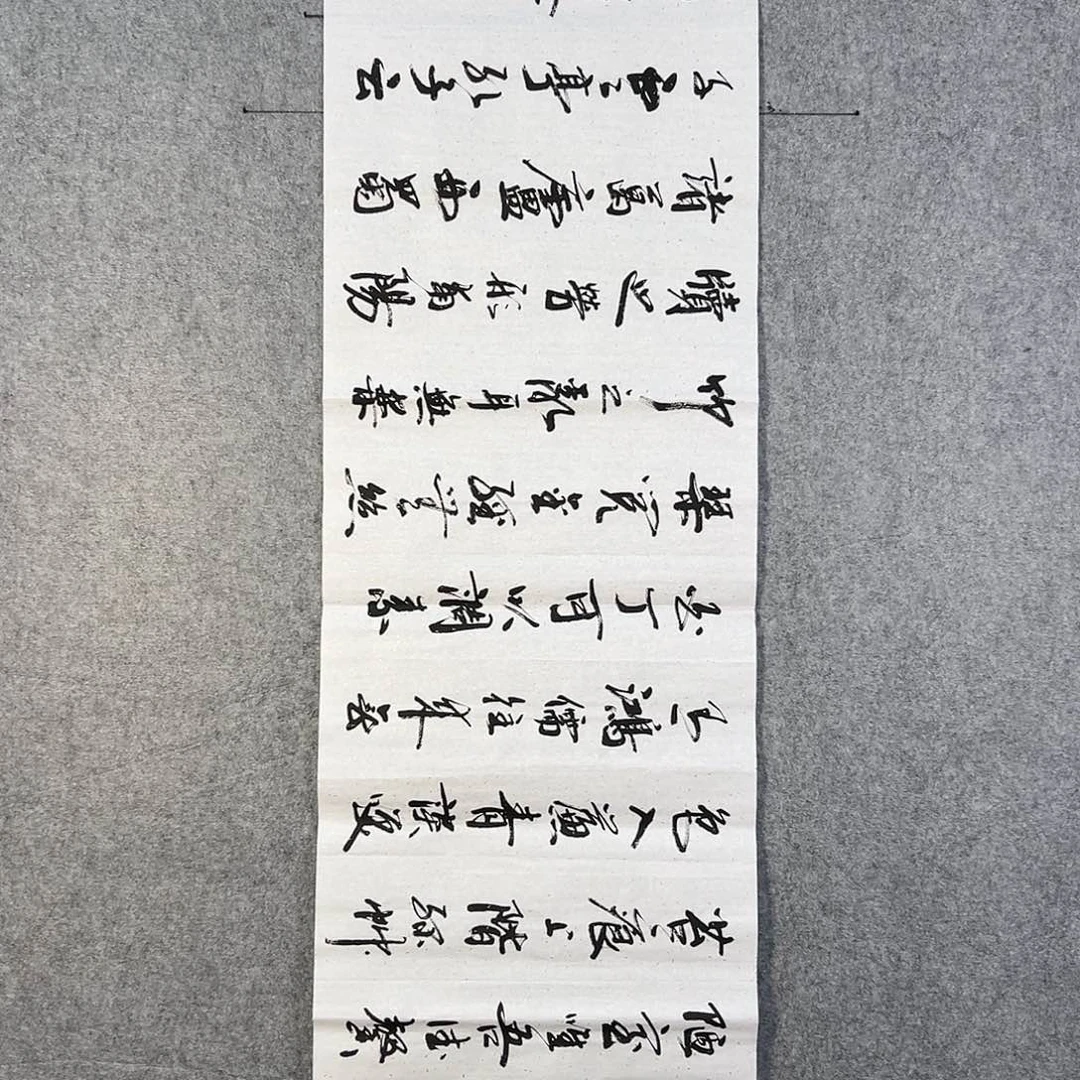 陋室惟吾德馨
苔痕上階綠艸
色入簾青談笑
有鴻儒往来無
白丁可以調素
琴閱金經無絲
竹之亂耳無案
牘之勞形南陽
諸葛廬西蜀
子雲亭孔子云